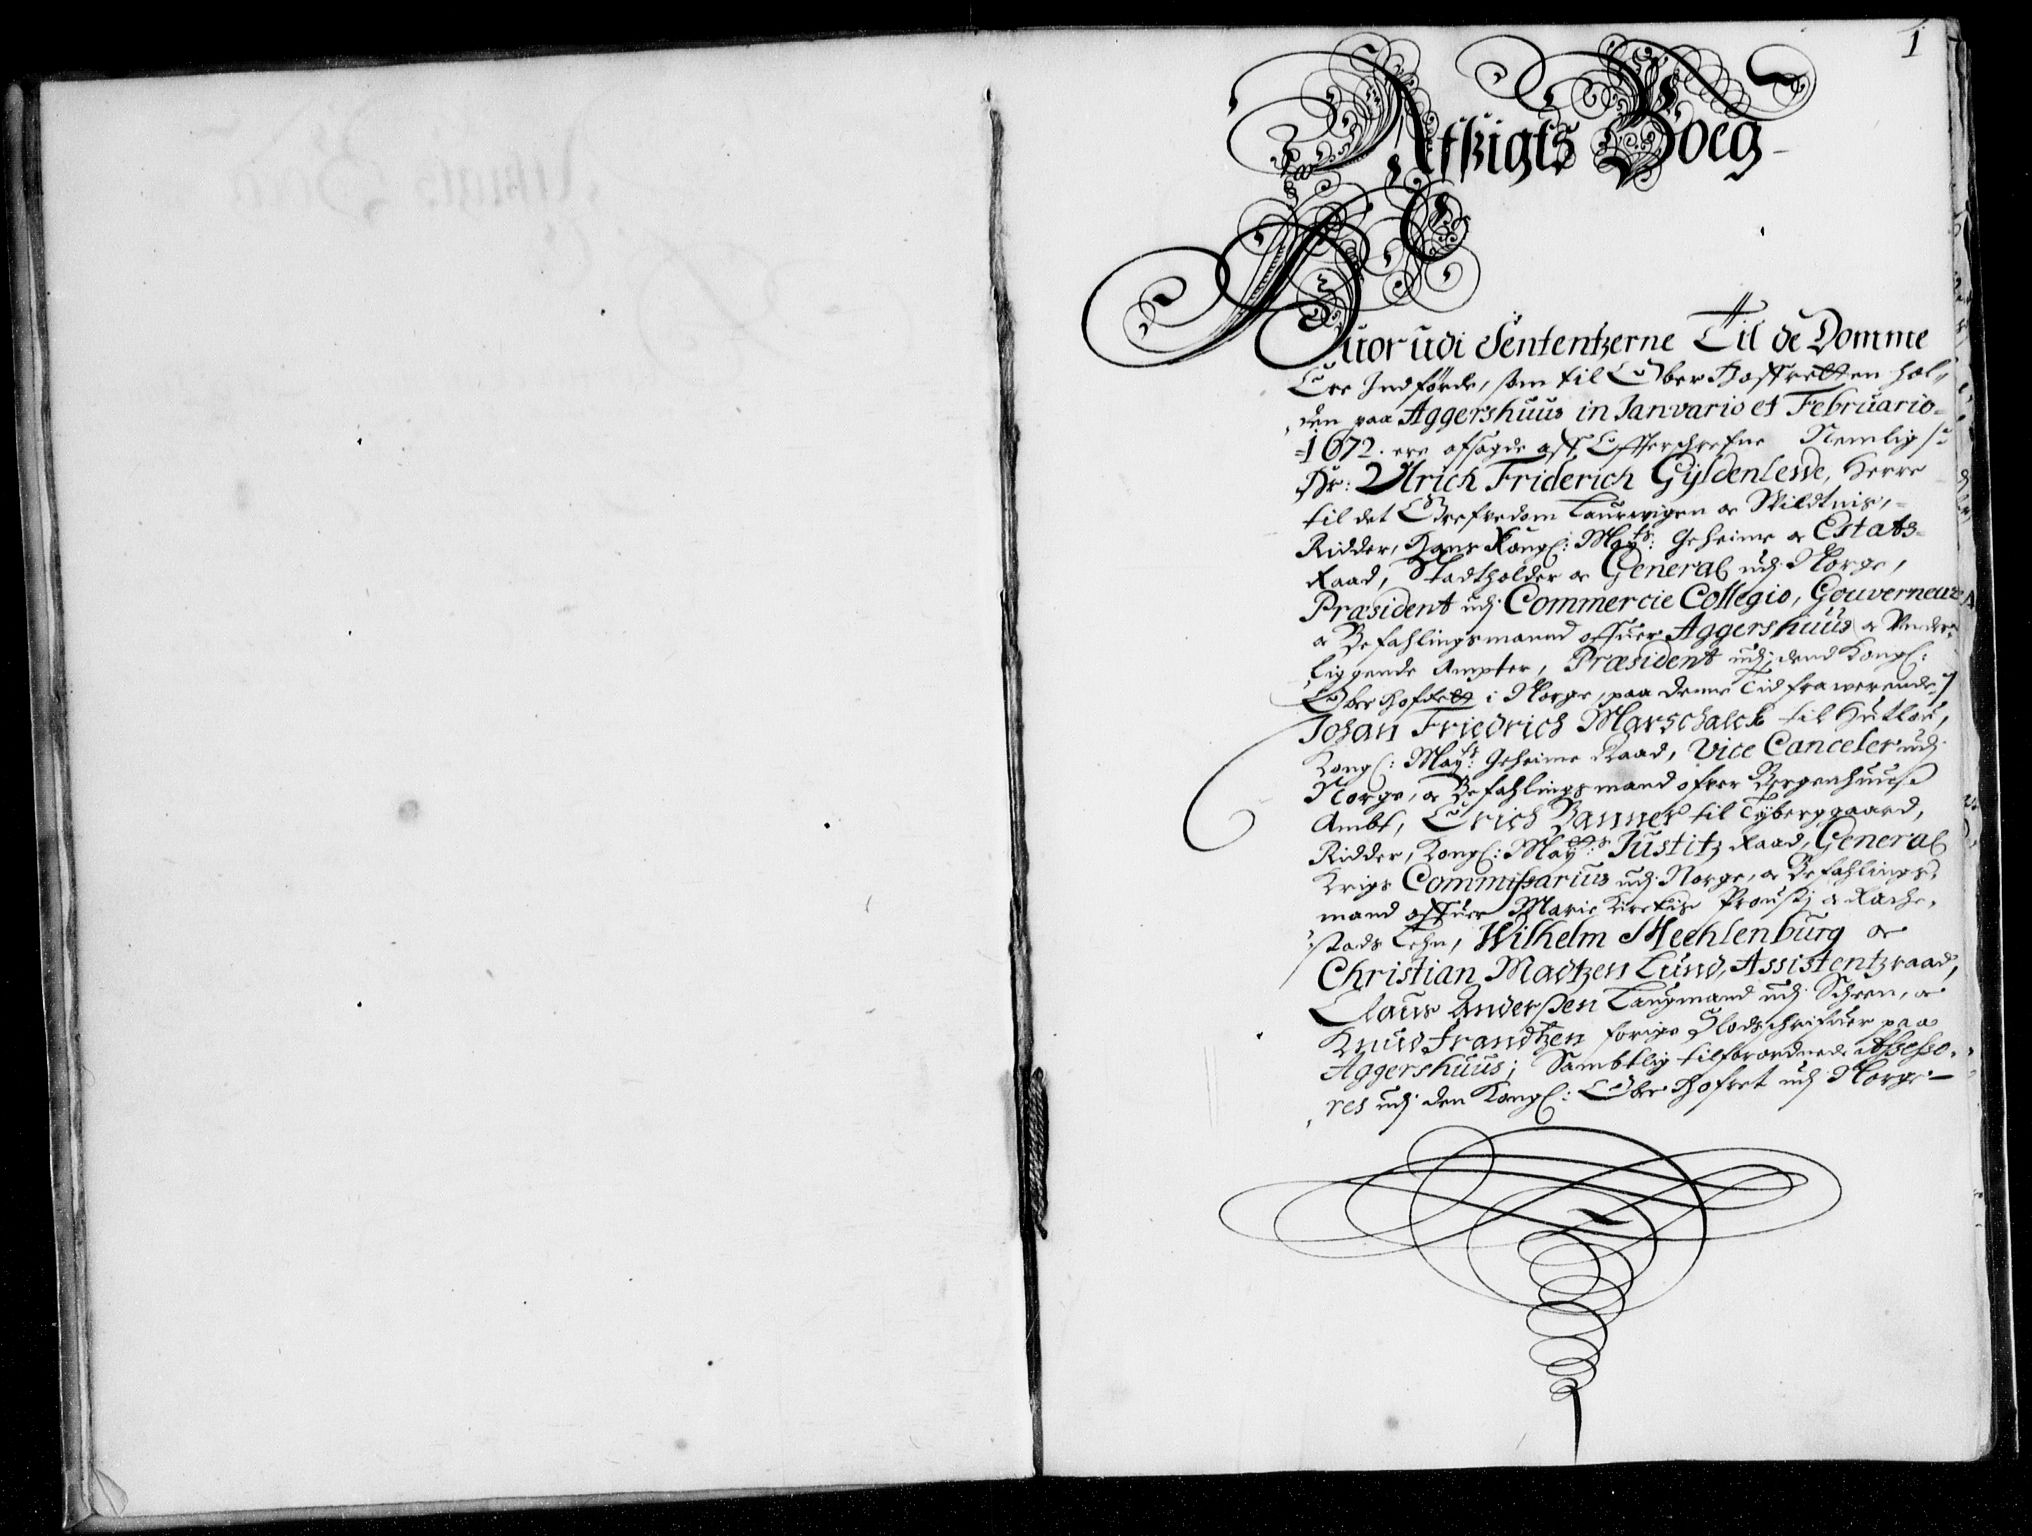 1
Afskigts Boeg
Huorudi Sententzerne Til de Domme
Ere Indførde, som til Ober Hoffretten hol„
den paa Aggershuus in Ianvario et Februario
1672. ere afsagde aff Effterschrefne Nemlig
Hr: Ulrich Friderich Gyldenlewe, Herre
til det Grefvedom Laurwigen oc Wildtnis,
Ridder, Hans Kongl: Mayts: Geheime oc Estats
Raad, Stadtholder oc General udj Norge,
Præsident udj Commercie Collegio, Gouverneur
oc Befahlingsmannd offuer Aggershuus oc Under
liggende Ampter, Præsident udj dend Kongl:
Ober Hofrett i Norge, paa denne Tid frawerende,
Johan Friedrich Marschalck til Hutloe,
Kongl: Mayts: Geheime Raad, Vice Canceler udj
Norge, oc Befahlingsmand ofver Bergenhuuse
Ambt, Erich Banner til Tÿberggaard,
Ridder, Kongl: Mayts: Justitz Raad, General
Krigs Commissarius udj Norge, oc Befahlings
mand offuer Marie Kirckis Prousti oc Rache„
stads Lehn, Wilhelm Mechlenburg oc
Christian Madtzen Lund, Assistentzraad,
Claus Andersen Laugmand udj Scheen, oc
Knud Frandtzen forige Slodschrifuer paa
Aggershuus; Sambtlig tilforordnede Assesso„
res udj den Kongl: Ober Hofret udj Norge